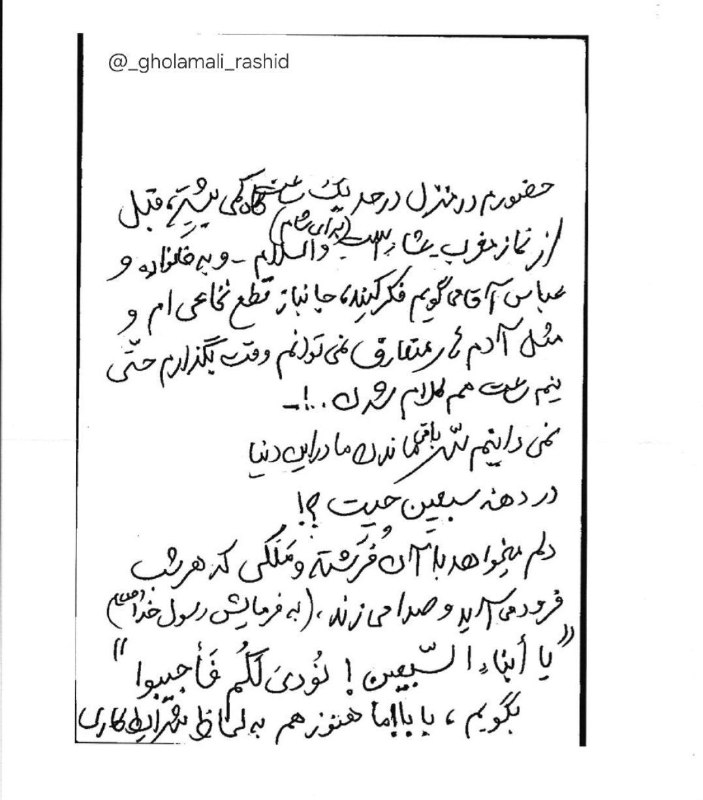 @_gholamali_rashid
حضورم در منزل در حد یک ساعت گاه کمی بیشتر، قبل
از نماز مغرب عشاء است (برای شام) والسلام - و به خانواده و
عباس آقا می گویم فکر کنید، جانباز قطع نخاعی ام و
مثل آدم های متعارف نمی توانم وقت بگذارم حتّی
نیم ساعت هم کلام شدن ..!ـ
نمی دانیم سّر باقی ماندن ما در این دنیا
در دهه سبعین چیست ؟!
دلم میخواهد با آن فُرَشته و مَلَکی که هر شب
فرود می آید و صدا می زند ، (به فرمایش رسول خدا (ص))
"یا أبناءِ السّبعین ! نُودیَ لَکُم فَأجیبوا"
بگویم ، بابا! ما هنوز هم به لحاظ شرایط کاری